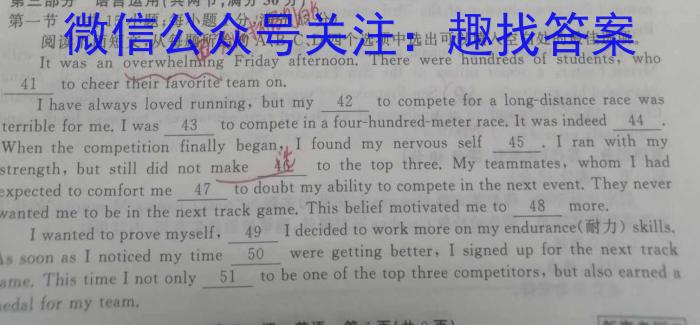 第三部分 语言运用(共两节,满分30分)
第一节
微信公众号关注：趣找答案
阅读下面短文,从每题所给的A、B、C、D四个选项中选出可以填入空白处的最佳选项。
It was an overwhelming Friday afternoon. There were hundreds of students, who
41 to cheer their favorite team on.
I have always loved running, but my 42 to compete for a long-distance race was
terrible for me. I was 43 to compete in a four-hundred-meter race. It was indeed 44 .
When the competition finally began, I found my nervous self 45 . I ran with my
strength, but still did not make it 46 to the top three. My teammates, whom I had
expected to comfort me 47 to doubt my ability to compete in the next event. They never
wanted me to be in the next track game. This belief motivated me to 48 more.
I wanted to prove myself, 49 I decided to work more on my endurance(耐力) skills.
As soon as I noticed my time 50 were getting better, I signed up for the next track
ame. This time I not only 51 to be one of the top three competitors, but also earned a
nedal for my team.